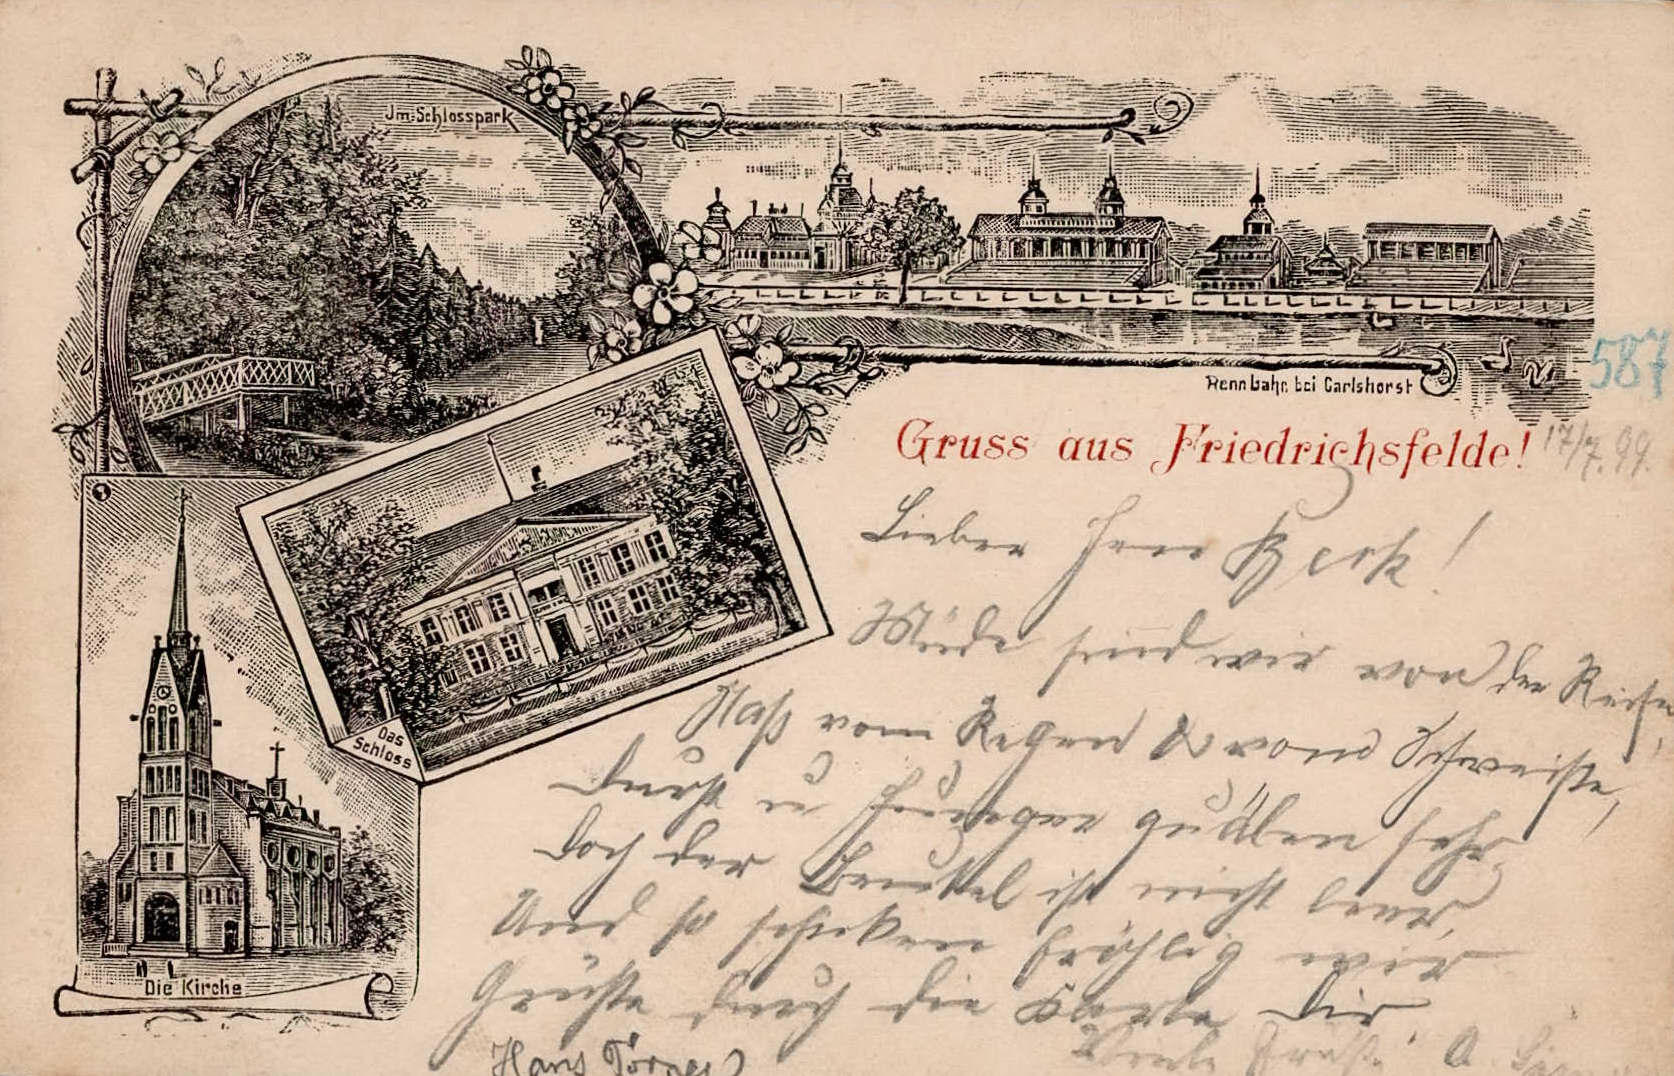 Jm Schlosspark
Rennbahn bei Carlshorst
587
Gruss aus Friedrichsfelde!
17/7. 99.
Das
Schloss
Die Kirche
Lieber Herr
Müde sind wir von der Reise,
Naß vom Regen & vom Schweiße,
Durst u Hunger quälen sehr.
Doch der Beutel ist nicht leer,
Und so schicken fröhlig wir
Grüße durch die Karte Dir
Hans
Viele Grüße